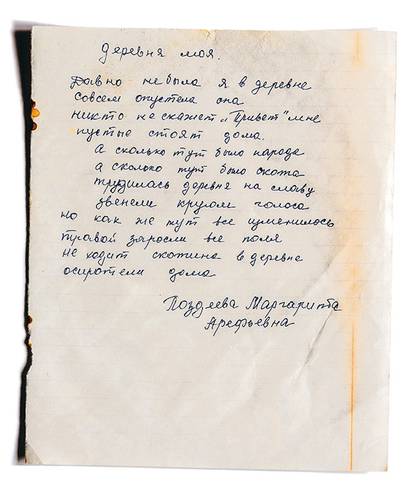 деревня моя.
Давно не была я в деревне
совсем опустела она
никто не скажет „Привет" мне
пустые стоят дома.
А сколько тут было народа
а сколько тут было скота
трудилась деревня на славу
звенели кругом голоса
но как же тут все изменилось
травой заросли все поля
не ходит скотина в деревне
осиротели дома
Поздеева Маргарита
Арефьевна